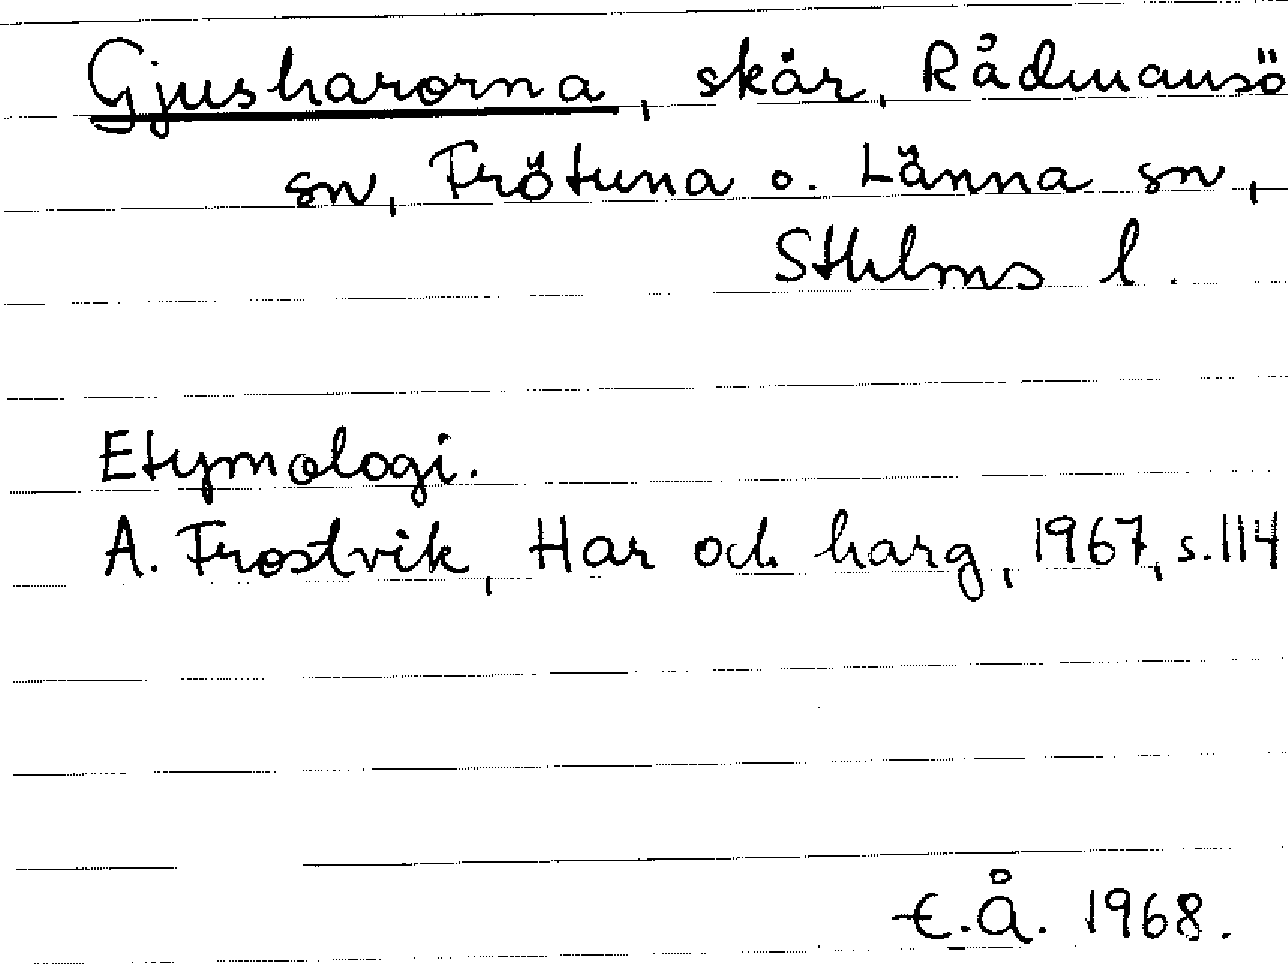 Gjusharorna, skär, Rådmansö
sn, Frötuna o. Länna sn,
Sthlms l.
Etymologi.
A. Frostvik, Har och harg, 1967, s. 114
E.Å. 1968.